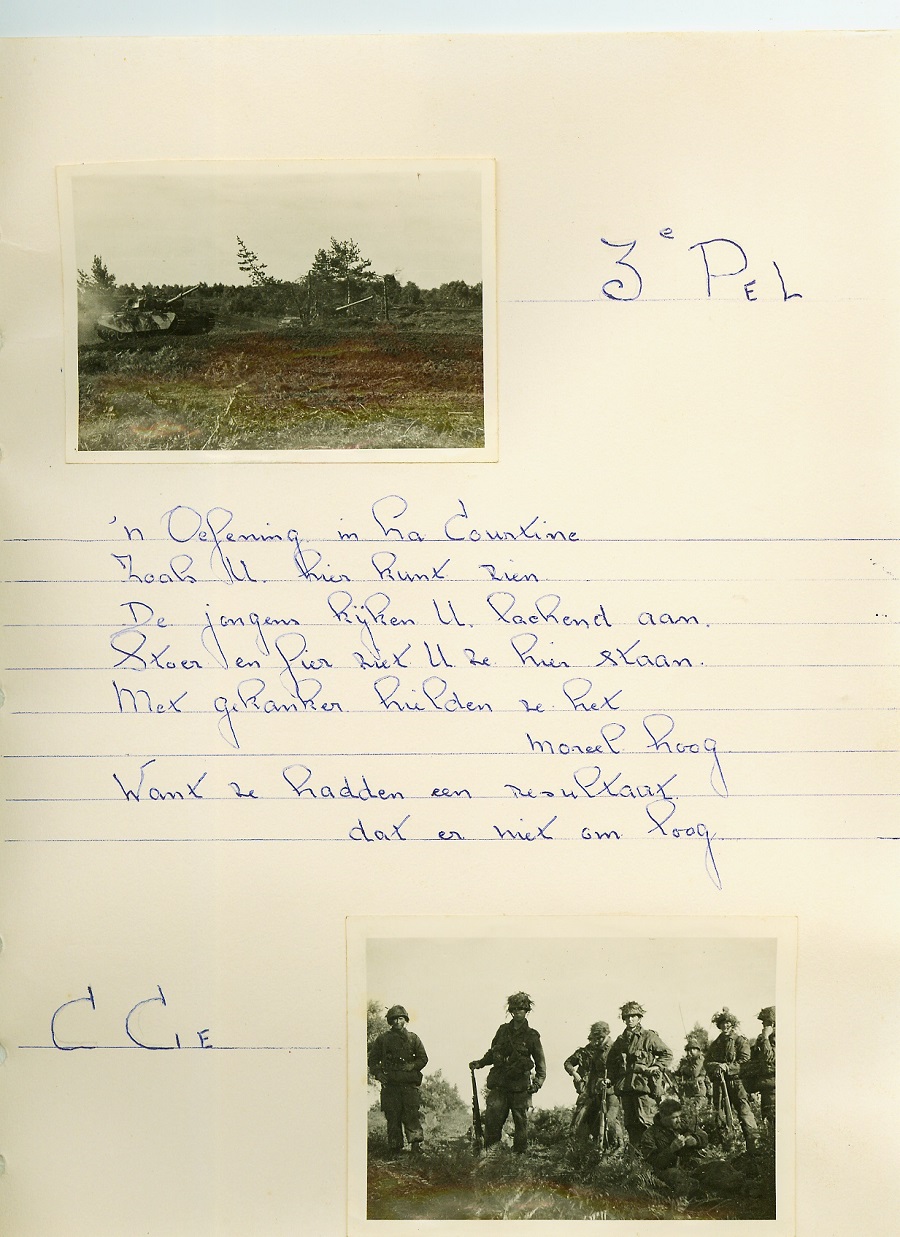 3e PEL
'n Oefening in La Courtine
Zoals U. hier kunt zien
De jongens kijken U. lachend aan.
Stoer en fier ziet U ze hier staan.
Met gekanker hielden ze het
moreel hoog
Want ze hadden een resultaat
dat er niet om loog
C CIE